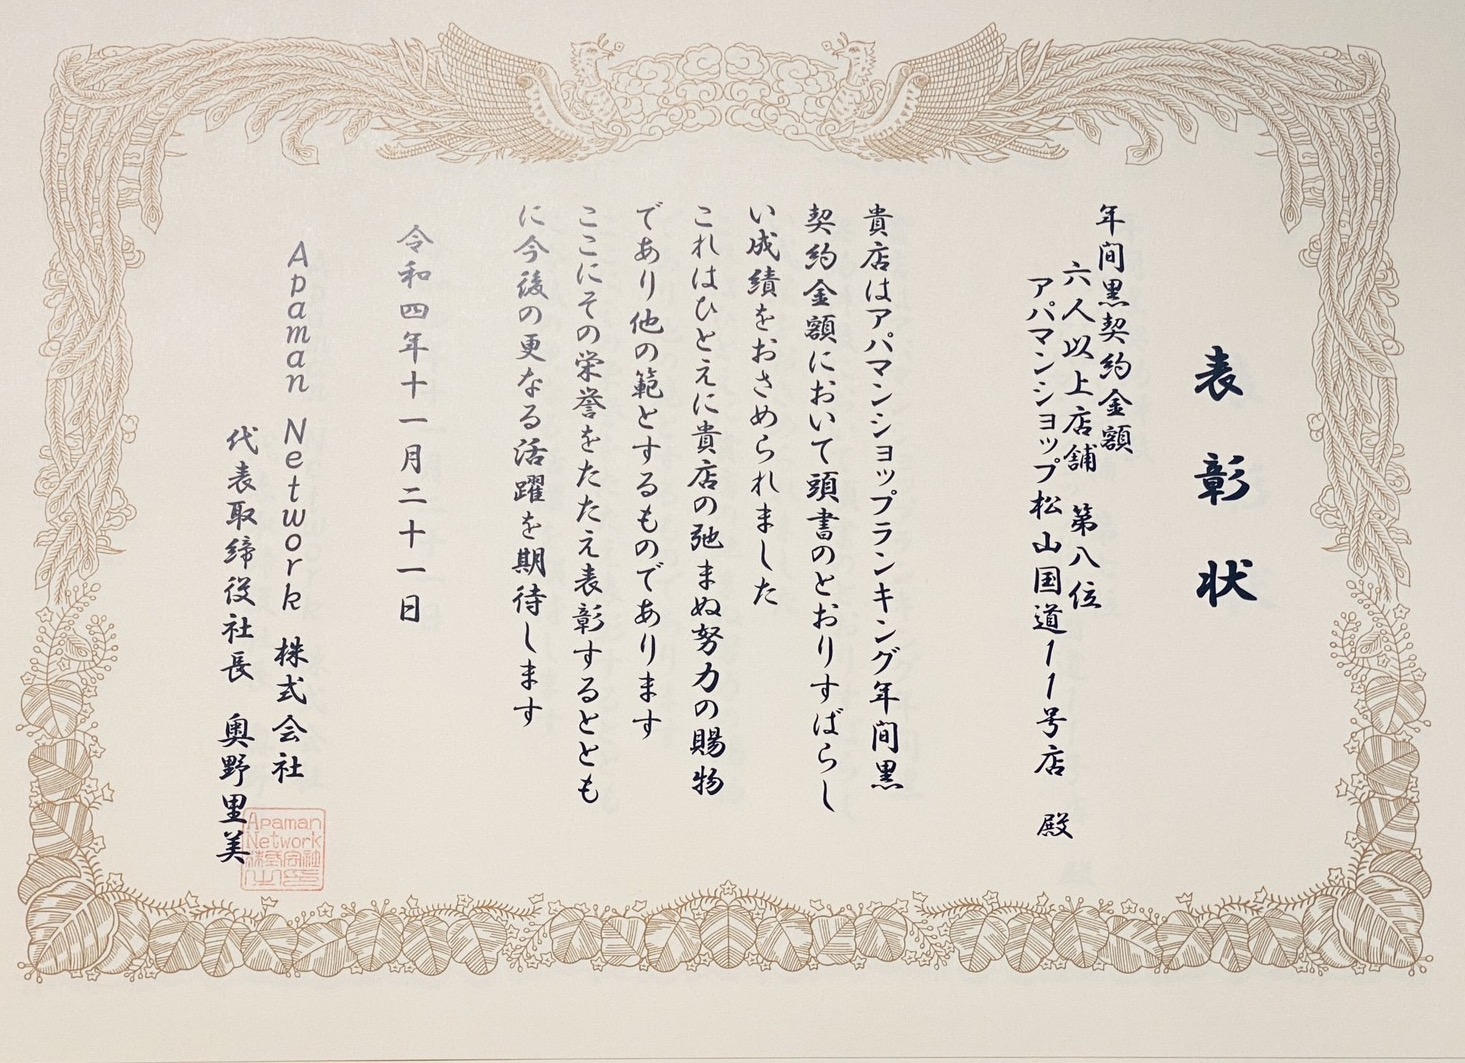 表彰状
年間黒契約金額
六人以上店舗　第八位
アパマンショップ松山国道11号店　殿
貴店はアパマンショップランキング年間黒
契約金額において頭書のとおりすばらし
い成績をおさめられました
これはひとえに貴店の弛まぬ努力の賜物
であり他の範とするものであります
ここにその栄誉をたたえ表彰するととも
に今後の更なる活躍を期待します
令和四年十一月二十一日
Apaman Network 株式会社
代表取締役社長　奥野里美
Apaman
Network